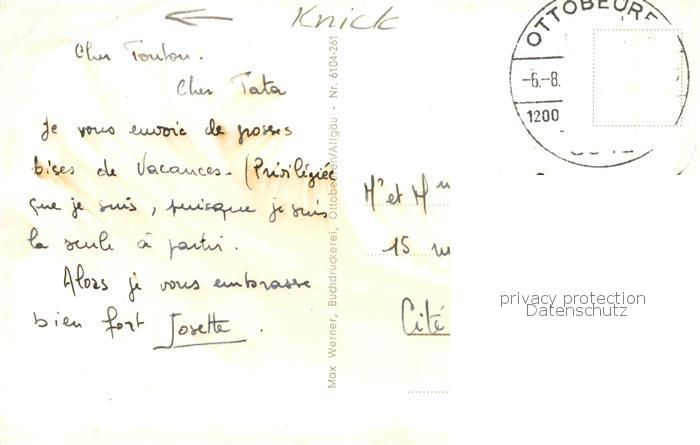 Knick
Cher Tonton.
Cher Tata
Je vous envoie de grosses
bises de Vacances. (Privilégiée
que je suis, puisque je suis
la seule à partir.
Alors je vous embrasse
bien fort Josette.
Max Werner, Buchdruckerei, Ottobeuren/Allgäu - Nr. 6104-261
OTTOBEURE
-6.-8.
1200
Mr et M
15
Cité
privacy protection
Datenschutz